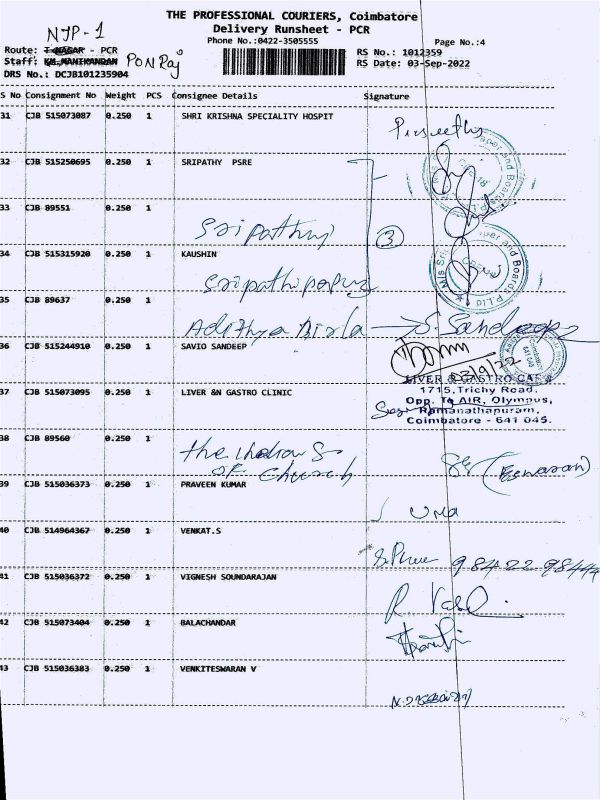 THE PROFESSIONAL COURIERS, Coimbatore
Delivery Runsheet - PCR
Phone No.:0422-3505555
Page No.:4
NJP-1
Route: T NAGAR - PCR
RS No.: 1012359
Staff: KM.MANIKANDAN PONRaj
RS Date: 03-Sep-2022
DRS No.: DCJB101235904
S No Consignment No Weight PCS Consignee Details Signature
31 CJB 515073087 0.250 1 SHRI KRISHNA SPECIALITY HOSPIT
32 CJB 515250695 0.250 1 SRIPATHY PSRE
33 CJB 89551 0.250 1
Sripathy
3
34 CJB 515315920 0.250 1 KAUSHIN
Sripathi paper
35 CJB 89637 0.250 1
Adithya Birla S. Sandeep
36 CJB 515244910 0.250 1 SAVIO SANDEEP
03/9/22
LIVER & GASTRO CARE
37 CJB 515073095 0.250 1 LIVER &N GASTRO CLINIC
1715, Trichy Road,
Opp. To AIR, Olympus,
Ramanathapuram,
Coimbatore - 641 045.
38 CJB 89560 0.250 1
the Indian S
OF Church
(Eswaran)
39 CJB 515036373 0.250 1 PRAVEEN KUMAR
UMA
40 CJB 514964367 0.250 1 VENKAT.S
98422 98444
41 CJB 515036372 0.250 1 VIGNESH SOUNDARAJAN
42 CJB 515073404 0.250 1 BALACHANDAR
43 CJB 515036383 0.250 1 VENKITESWARAN V